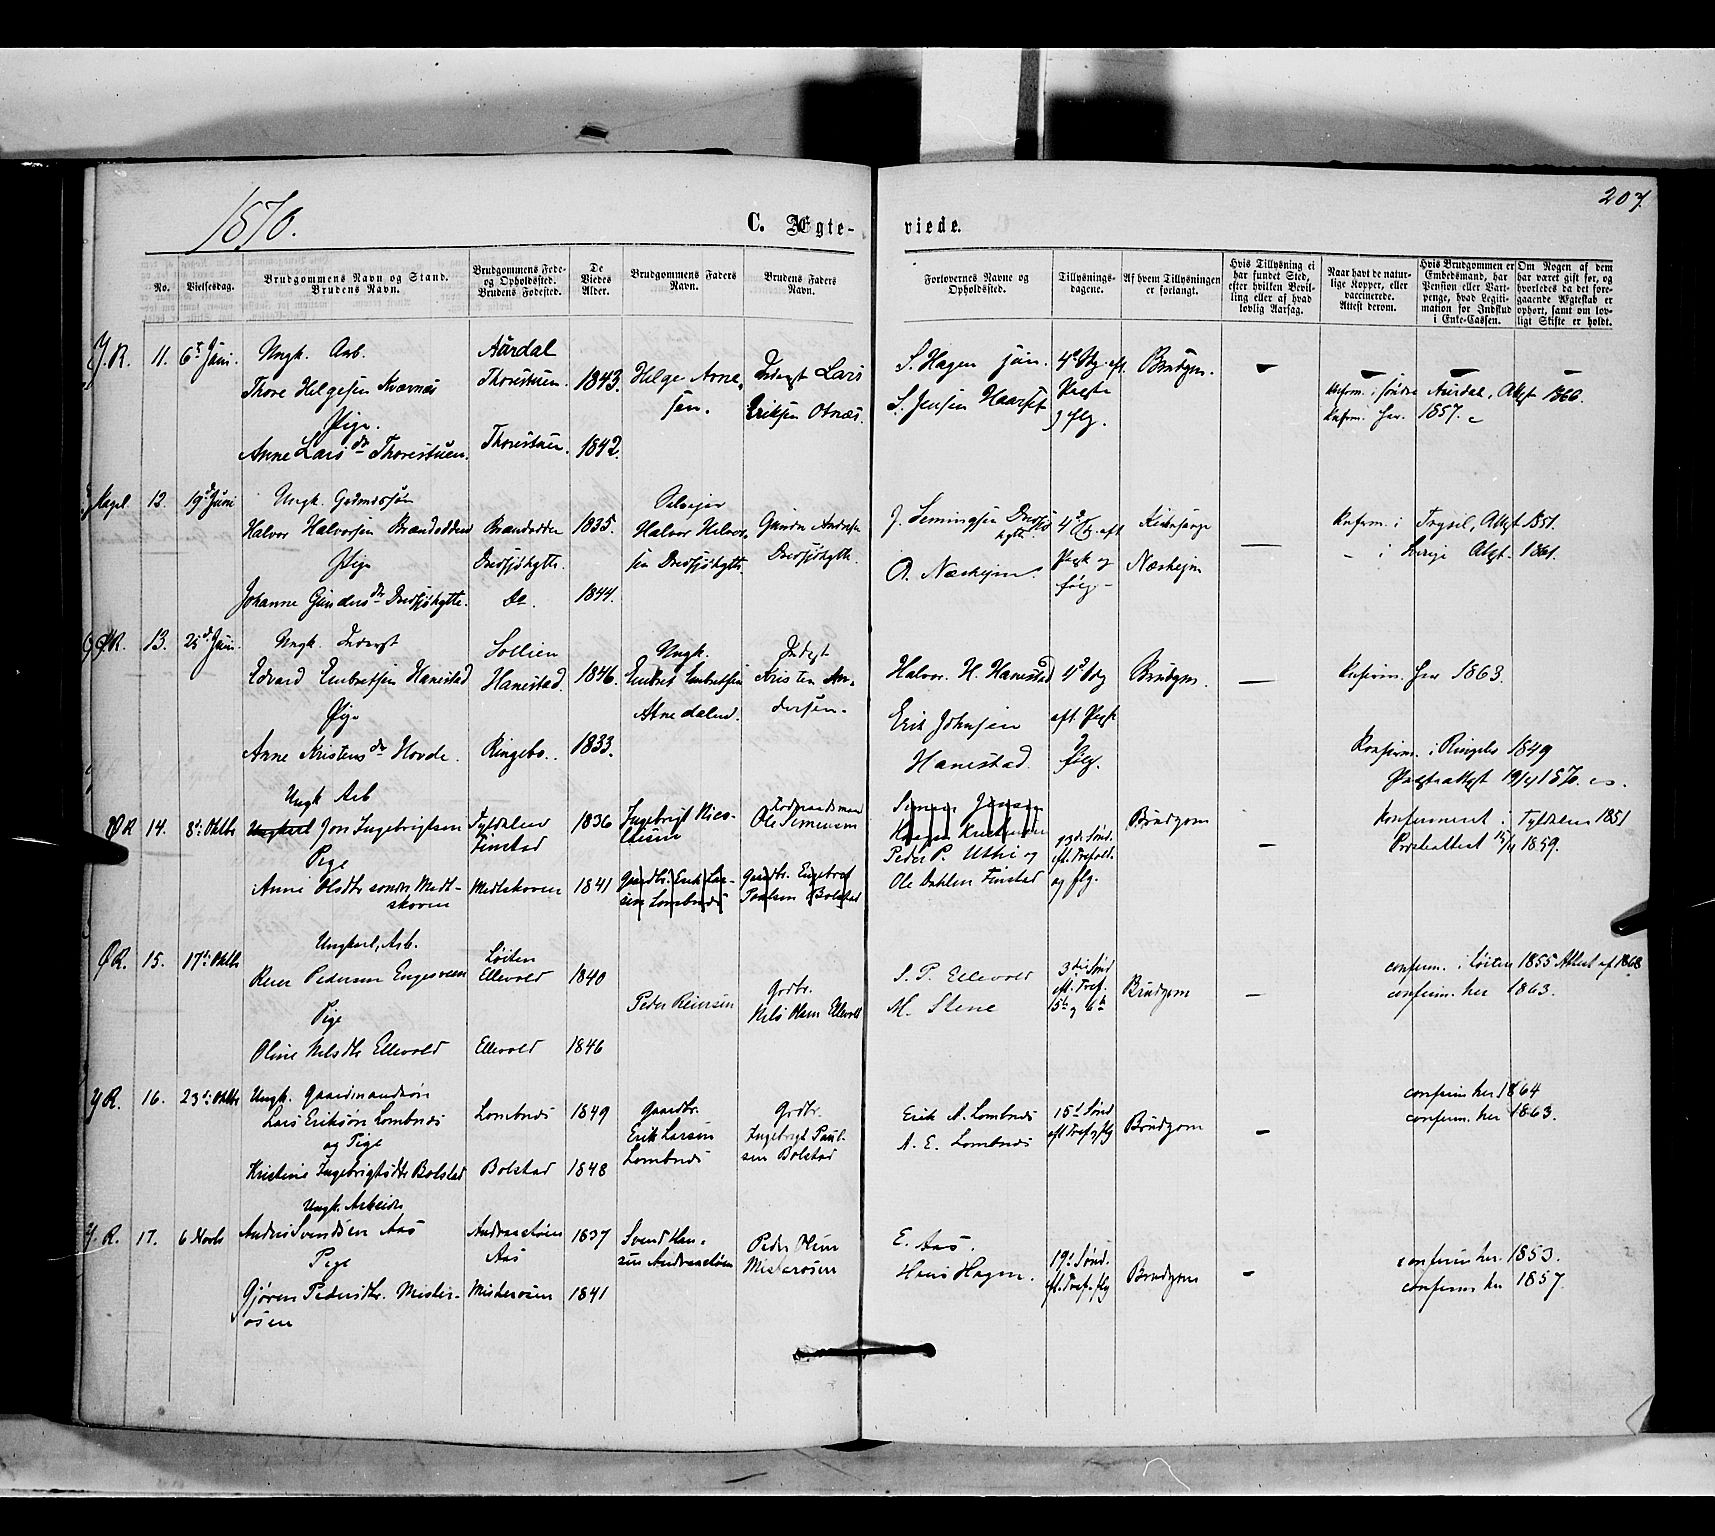 1870.
C. Ægte-
viede.
207.
No.
Vielsesdag.
Brudgommens Navn og Stand.
Brudens Navn.
Brudgommens Føde-
og Opholdssted.
Brudens Fødested.
De
Viedes
Alder.
Brudgommens Faders
Navn.
Brudens Faders
Navn.
Forlovernes Navne og
Opholdssted.
Tillysnings-
dagene.
Af hvem Tillysningen
er forlangt.
Hvis Tillysning ei
har fundet Sted,
efter hvilken Bevil-
ling eller af hvad
lovlig Aarsag.
Naar havt de natur-
lige Kopper, eller
vaccinerede.
Attest derom.
Hvis Brudgommen er
Embedsmand, har
Pension eller Vart-
penge, hvad Legiti-
mation for Indskud
i Enke-Cassen.
Om Nogen af dem
har været gift før, og
hvorledes da det fore-
gaaende Ægteskab er
ophørt, samt om lov-
ligt Skifte er holdt.
Y. R. 11. 6t Juni.
Ungk. Arb.
Thore Helgesen Kværnes
Pige.
Anne Larsdr Thorestuen.
Aurdal
Thorestuen.
Thorestuen.
1843.
1842.
Helge Arne-
sen.
Inderst Lars
Eriksen Otnæs.
S. Hagen jun.
S. Jensen Haarset
Brudgm.
Knfirm. i søndre Aurdal, Attst 1866.
Knfirm. her. 1857.
12. 19d Juni
Ungk. Gdmdssøn
Halvor Halvorsen Brændodden
Pige
Johanne Gundersdr Drevsjøhytte.
Brændodden
Drevsjøhytte.
Do.
1835.
1844.
Selvejer
Halvor Halvor-
sen Drevsjøhytte
Gunder Andersen
Drevsjøhytte.
J. Semingsen Drevsjø
hytte
O. Næsheim
Kirkesanger
Næsheim
Knfirm. i Trysil, Attst 1851.
- i Sverige Attst. 1861.
Ø R. 13. 25d Juni
Ungk. Inderst
Edvard Embretsen Hanestad
Pige
Anne Kristensdr Hovde.
Sollien
Hanestad.
Ringebo.
1846.
1833.
Ungk.
Embret Embretsen
Atnedalen.
Inderst
Kristen An-
dersen.
Halvor H. Hanestad
Erik Johnsen
Hanestad.
Brudgm.
Knfirm. her 1863.
Konfirm. i Ringebo 1849
Præsteattest 19/4 1870.
ØR 14. 8de Oktbr
Ungk Arb
Ungkarl Jon Ingebrigtsen
Pige
Anne Olsdtr søndre Medt-
skoven
Tyldalen
Finstad
Medtskoven
1836
1841
Ingebrigt Nico-
laisen
Gaardbr. Erik Lar-
sen Lombnæs
Fodmandsmand
Ole Simensen
Gaardbr. Engebret
Paulsen Bolstad
Simen Jensen
Peder P. Uthi og
Ole Dahlen Finstad
og flg.
Brudgom
Konfirmeret i Tyldalen 1851
Præsteattest 15/11 1859.
ØR. 15. 17de Oktbr
Ungkarl, Arb.
Reier Pedersen Engesveen
Pige
Oline Nilsdtr Ellevold
Løiten
Ellevold
Ellevold
1840
1846
Peder Reiersen
Gdbr.
Nils Olsen Ellevold
S. P. Ellevold
M. Stene
3die Sønd
eft. Tref.
Brudgom
confirm. i Løiten 1855 Attest af 1868
confirm. her 1863.
Y R. 16. 23de Oktbr
Ungk. Gaardmandssøn
Lars Eriksøn Lombnæs
og Pige
Kristine Ingebrigtsdtr Bolstad
Lombnæs
Bolstad
1849
1848
Gaardbr.
Erik Larsen
Lombnæs
Grdbr.
Ingebrigt Paul-
sen Bolstad
Erik A. Lombnæs
A. E. Lombnæs
15d Sønd
eft Tref & flg
Brudgom
confirm her 1864
confirm. her 1863.
Y. R. 17. 6 Novbr
Ungk. Arbeider
Anders Svendsen Aas
Pige
Gjøren Pedersdtr. Mister-
osen
Andraastøen
Aas
Misterosen
1837
1841
Svend Han-
sen Andraastøen
Peder Olsen
Misterosen
E. Aas.
Hans Hagen.
19d Sønd.
eft. Tref. & flg
Brudgom
confirm her. 1853.
confirm her 1857.